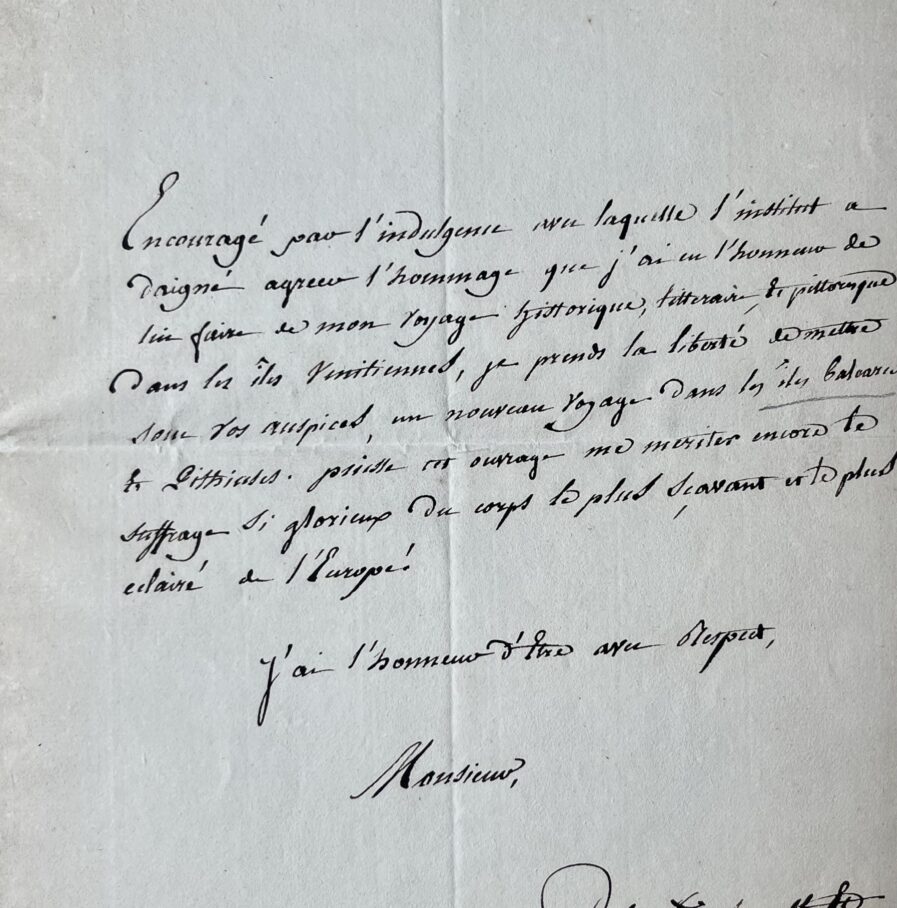 Encouragé par l'indulgence avec laquelle l'institut a
daigné agreer l'hommage que j'ai eu l'honneur de
lui faire de mon voyage historique, litteraire, & pittoresque
dans les îles Venitiennes, je prends la liberté de mettre
sous vos auspices, un nouveau voyage dans les îles baleares
& Pithiuses. puisse cet ouvrage me meriter encore le
suffrage si glorieux du corps le plus sçavant et le plus
eclairé de l'Europe.
J'ai l'honneur d'Etre avec Respect,
Monsieur,